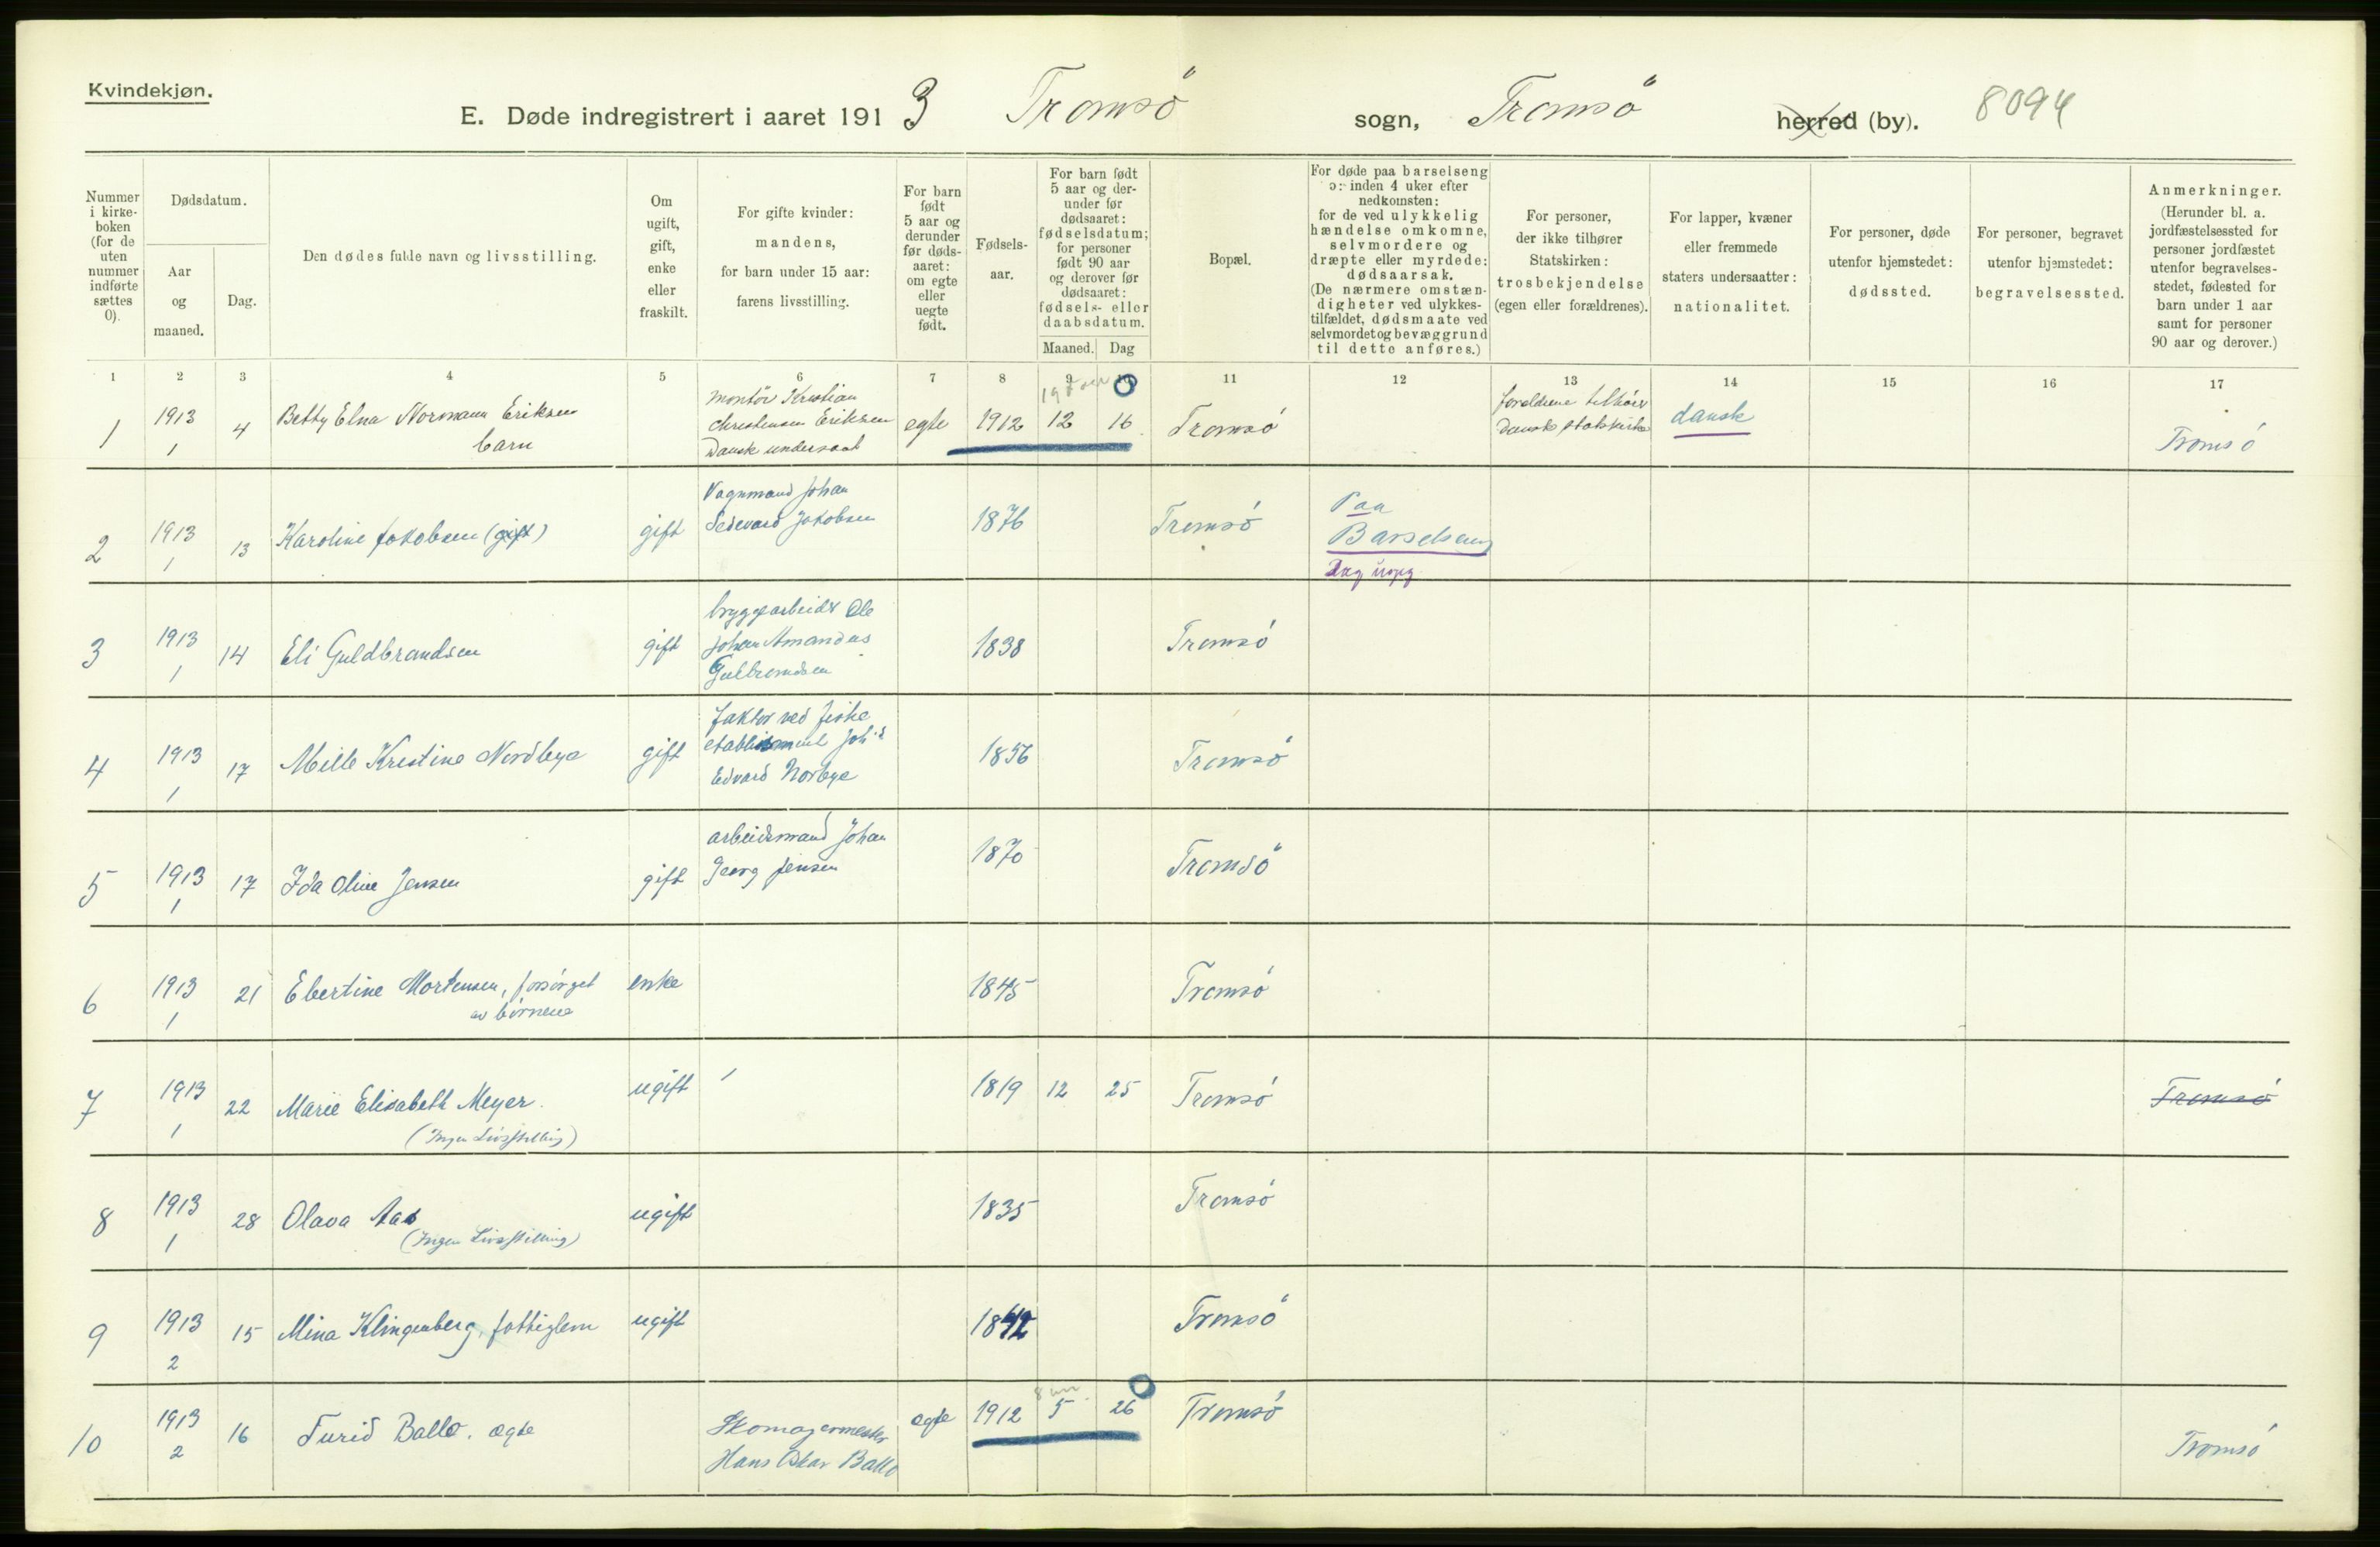 Kvindekjøn.
E. Døde indregistrert i aaret 1913 Tromsö sogn, Tromsö herred (by). 8094
Nummer i kirke-boken (for de uten nummer indførte sættes 0).
Dødsdatum.
Aar og maaned.
Dag.
Den dødes fulde navn og livsstilling.
Om ugift, gift, enke eller fraskilt.
For gifte kvinder: mandens, for barn under 15 aar: farens livsstilling.
For barn født 5 aar og derunder før døds-aaret: om egte eller uegte født.
Fødsels-aar.
For barn født 5 aar og der-under før dødsaaret: fødselsdatum; for personer født 90 aar og derover før dødsaaret: fødsels- eller daabsdatum.
Maaned. Dag
Bopæl.
For døde paa barselseng ɔ: inden 4 uker efter nedkomsten: for de ved ulykkelig hændelse omkomne, selvmordere og dræpte eller myrdede: dødsaarsak. (De nærmere omstæn-digheter ved ulykkes-tilfældet, dødsmaate ved selvmordet og bevæggrund til dette anføres.)
For personer, der ikke tilhører Statskirken: trosbekjendelse (egen eller forældrenes).
For lapper, kvæner eller fremmede staters undersaatter: nationalitet.
For personer, døde utenfor hjemstedet: dødssted.
For personer, begravet utenfor hjemstedet: begravelsessted.
Anmerkninger. (Herunder bl. a. jordfæstelsessted for personer jordfæstet utenfor begravelses-stedet, fødested for barn under 1 aar samt for personer 90 aar og derover.)
1 2 3 4 5 6 7 8 9 10 11 12 13 14 15 16 17
1 1913 1 4 Betty Elna Normann Eriksen barn montör Kristian Christensen Eriksen Dansk undersaat egte 1912 12 16 Tromsö foreldrene tilhörer Dansk statskirke dansk Tromsö
2 1913 1 13 Karoline Jakobsen (gift) gift Vognmand Johan Sedevard Jakobsen 1876 Tromsö Paa Barselseng
3 1913 1 14 Eli Guldbrandsen gift bryggearbeider Ole Johan Amandus Gulbrandsen 1838 Tromsö
4 1913 1 17 Mille Kristine Nordbye gift faktor ved fiske etablissment Joh.s Edvard Norbye 1856 Tromsö
5 1913 1 17 Ida Oline Jensen gift arbeidsmand Johan Georg Jensen 1870 Tromsö
6 1913 1 21 Ebertine Mortensen, forsörget av börnene enke 1845 Tromsö
7 1913 1 22 Marie Elisabeth Meyer. (Ingen Livsstilling) ugift 1819 12 25 Tromsö Tromsö
8 1913 1 28 Olava Aas (Ingen Livsstilling) ugift 1835 Tromsö
9 1913 2 15 Mina Klingenberg, fattiglem ugift 1842 Tromsö
10 1913 2 16 Turid Ballo. egte Skomagermester Hans Oskar Ballo egte 1912 5 26 Tromsö Tromsö